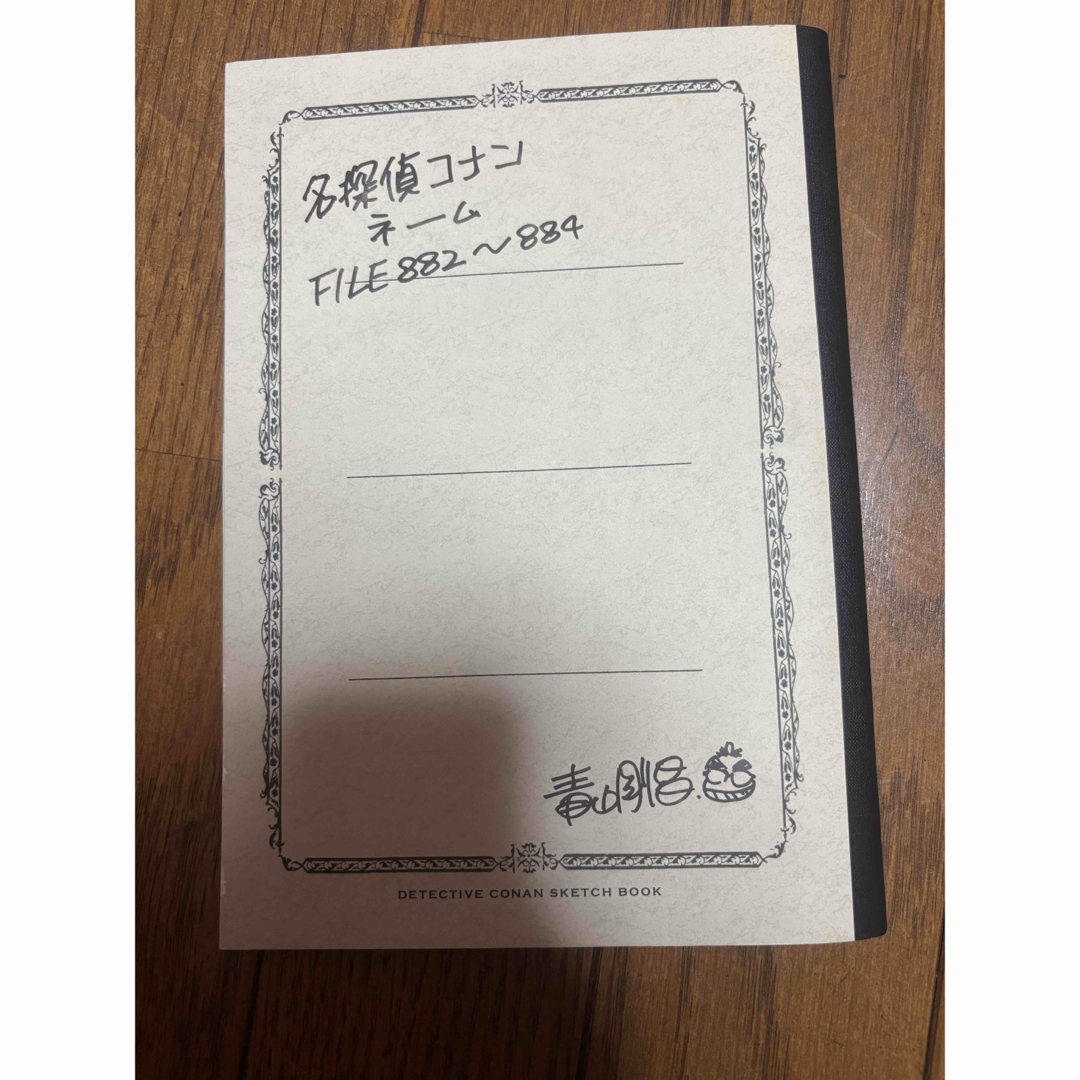 名探偵コナン
ネーム
FILE 882〜884
青山剛昌.
DETECTIVE CONAN SKETCH BOOK